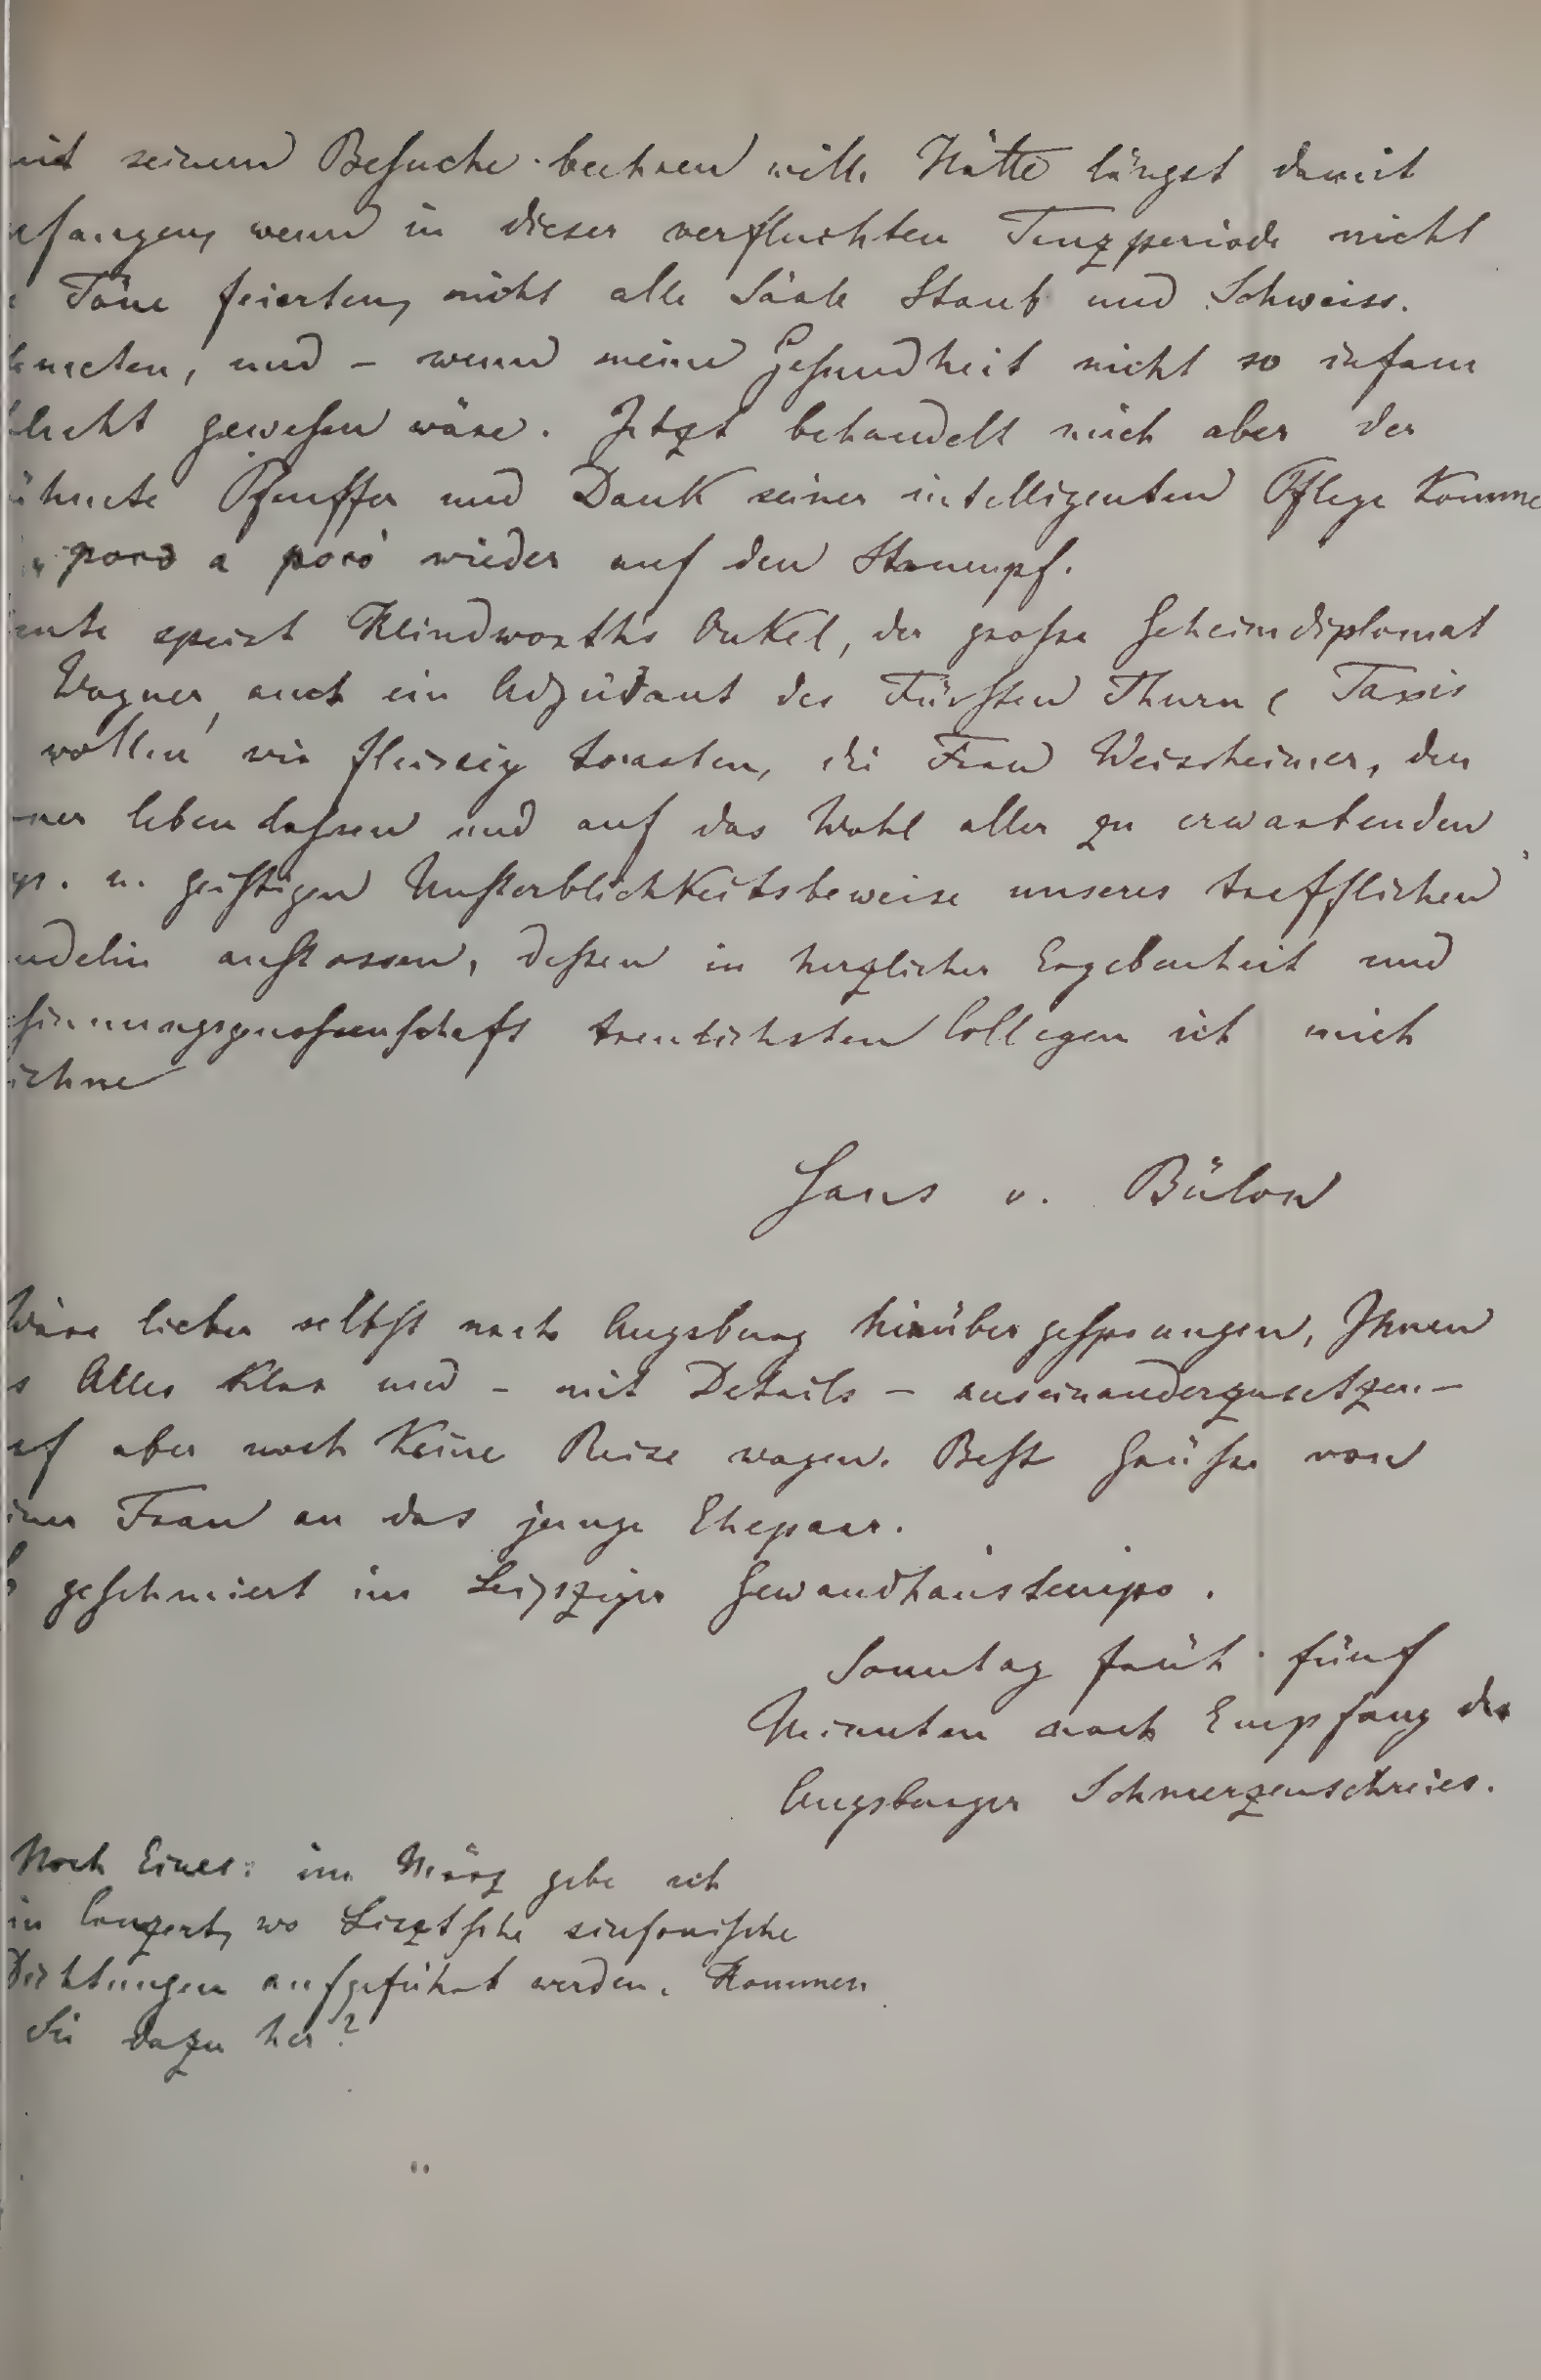 mit seinem Besuche beehren will. Hätte längst damit
nfangen, wenn in dieser verfluchten Tanzperiode nicht
e Töne feierten, nicht alle Säale Staub und Schweiss.
hmeten, und – wenn meine Gesundheit nicht so infam
hlecht gewesen wäre. Jetzt behandelt mich aber der
ühmte Pfeuffer und Dank seiner intelligenten Pflege komme
poco a poco wieder auf den Strumpf.
eute speist Klindworth's Onkel, der große Geheimdiplomat
Wagner, auch ein Adjudant des Fürsten Thurn & Taxis
wollen wir fleissig toasten, die Frau Weissheimer, den
ner leben lassen und auf das Wohl aller zu erwartenden
ys. u. geistigen Unsterblichkeitsbeweise unseres trefflichen
ndelin anstossen, dessen in herzlicher Ergebenheit und
esinnungsgenossenschaft treulichsten Collegen ich mich
ichne
Hans v. Bülow
Wäre lieber selbst nach Augsburg hinüber gesprungen, Ihnen
s Alles klar und – mit Details – auseinanderzusetzen –
rf aber noch keine Reise wagen. Beste Grüße von
iner Frau an das junge Ehepaar.
geschmiert im Leipziger Gewandhaustempo.
Sonntag früh fünf
Minuten nach Empfang des
Augsburger Schmerzenschreies.
Noch Eines: im März gebe ich
in Conzert, wo Lisztsche sinfonische
Dichtungen aufgeführt werden. Kommen
Sie dazu her?